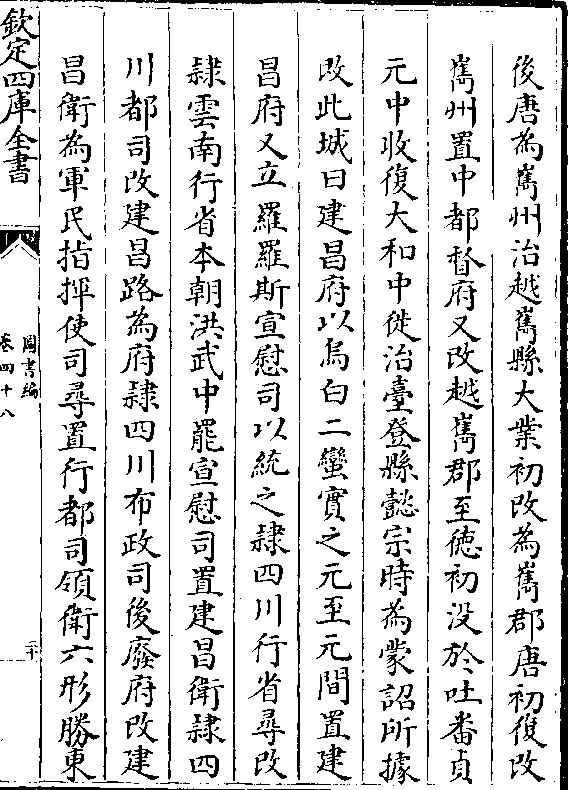 後唐為嶲州治越嶲縣大業初改為嶲郡唐初復改
嶲州置中都督府又改越嶲郡至徳初没於吐番貞
元中收復大和中徙治臺登縣懿宗時為蒙詔所據
改此城曰建昌府以烏白二蠻實之元至元間置建
昌府又立羅羅斯宣慰司以統之隷四川行省尋改
隷雲南行省本朝洪武中罷宣慰司置建昌衛隷四
川都司改建昌路為府隷四川布政司後廢府改建
昌衛為軍民指揮使司尋置行都司領衛六形勝東
欽定四庫全書
圖書編
卷四十八
二十